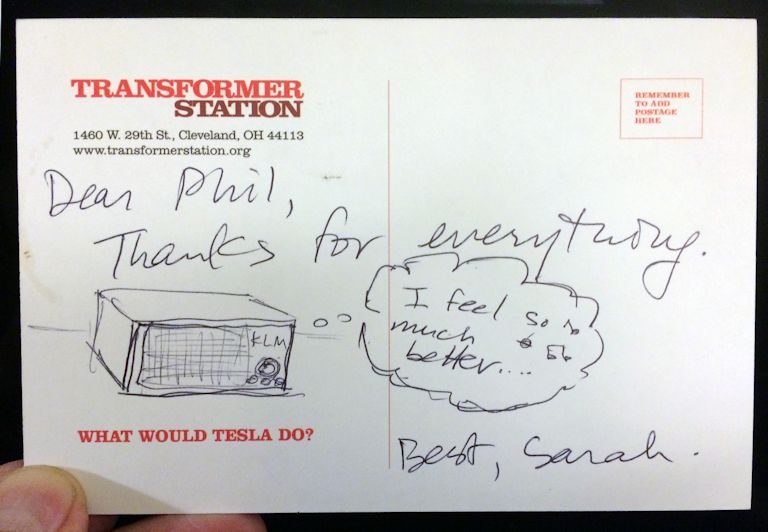 TRANSFORMER
STATION
1460 W. 29th St., Cleveland, OH 44113
www.transformerstation.org
REMEMBER
TO ADD
POSTAGE
HERE
Dear Phil,
Thanks for everything.
KLM
I feel so
much
better....
WHAT WOULD TESLA DO?
Best, Sarah.